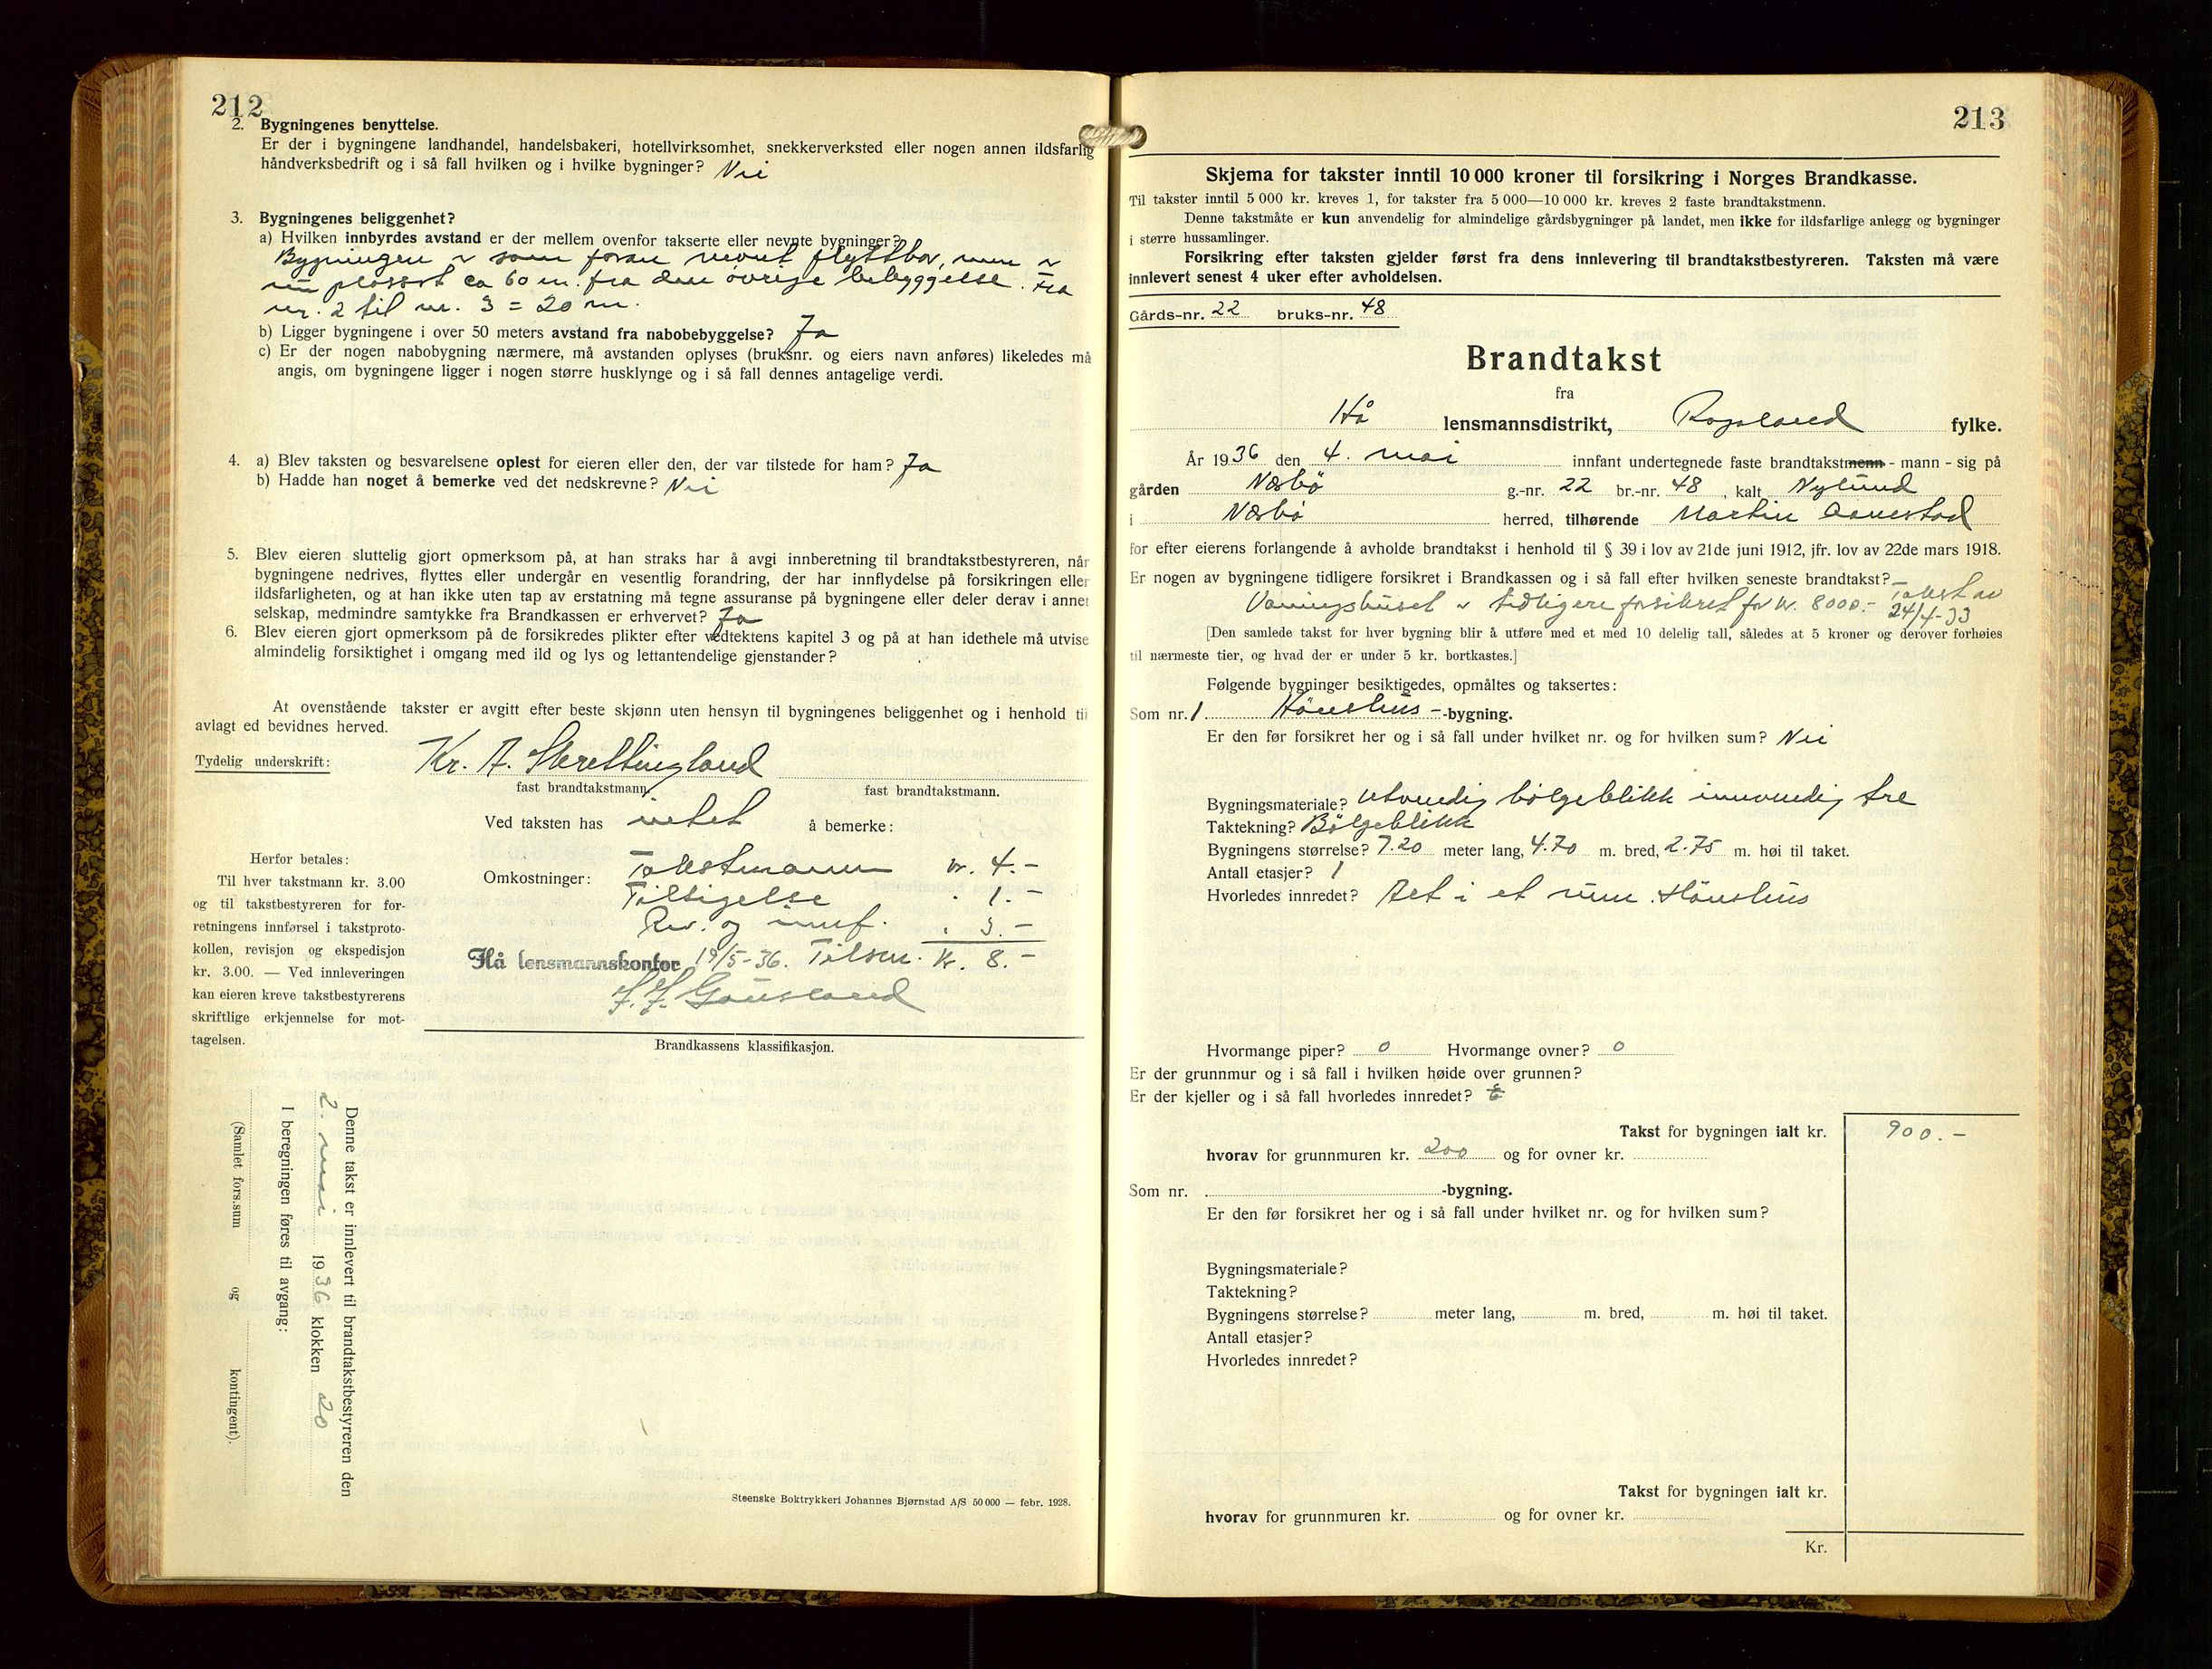 212
2. Bygningenes benyttelse.
Er der i bygningene landhandel, handelsbakeri, hotellvirksomhet, snekkerverksted eller nogen annen ildsfarlig
håndverksbedrift og i så fall hvilken og i hvilke bygninger? Nei
3. Bygningenes beliggenhet?
a) Hvilken innbyrdes avstand er der mellem ovenfor takserte eller nevnte bygninger?
Bygningen er som foran nevnt flyttbar, men er
nu plassert ca 60 m. fra den övrige bebyggelse. Fra
nr. 2 til nr. 3 = 20 m.
b) Ligger bygningene i over 50 meters avstand fra nabobebyggelse? Ja
c) Er der nogen nabobygning nærmere, må avstanden oplyses (bruksnr. og eiers navn anføres) likeledes må
angis, om bygningene ligger i nogen større husklynge og i så fall dennes antagelige verdi.
4. a) Blev taksten og besvarelsene oplest for eieren eller den, der var tilstede for ham? Ja
b) Hadde han noget å bemerke ved det nedskrevne? Nei
5. Blev eieren sluttelig gjort opmerksom på, at han straks har å avgi innberetning til brandtakstbestyreren, når
bygningene nedrives, flyttes eller undergår en vesentlig forandring, der har innflydelse på forsikringen eller
ildsfarligheten, og at han ikke uten tap av erstatning må tegne assuranse på bygningene eller deler derav i annet
selskap, medmindre samtykke fra Brandkassen er erhvervet? Ja
6. Blev eieren gjort opmerksom på de forsikredes plikter efter vedtektens kapitel 3 og på at han idethele må utvise
almindelig forsiktighet i omgang med ild og lys og lettantendelige gjenstander?
At ovenstående takster er avgitt efter beste skjønn uten hensyn til bygningenes beliggenhet og i henhold til
avlagt ed bevidnes herved.
Tydelig underskrift: Kr. A. Skrettingland
fast brandtakstmann. fast brandtakstmann.
Ved taksten has intet å bemerke:
Herfor betales:
Til hver takstmann kr. 3.00
og til takstbestyreren for for-
retningens innførsel i takstproto-
kollen, revisjon og ekspedisjon
kr. 3.00. — Ved innleveringen
kan eieren kreve takstbestyrerens
skriftlige erkjennelse for mot-
tagelsen.
Omkostninger: Takstmann kr. 4.-
Tilsigelse " 1.-
Rev. og innf. " 3.-
Hå lensmannskontor 19/5-36. Tilsm. kr. 8.-
J. J. Gausland
Brandkassens klassifikasjon.
Denne takst er innlevert til brandtakstbestyreren den
2. mai 1936 klokken 20
I beregningen føres til avgang:
(Samlet fors.sum og kontingent).
Steenske Boktrykkeri Johannes Bjørnstad A/S 50 000 — febr. 1928.
213
Skjema for takster inntil 10 000 kroner til forsikring i Norges Brandkasse.
Til takster inntil 5 000 kr. kreves 1, for takster fra 5 000—10 000 kr. kreves 2 faste brandtakstmenn.
Denne takstmåte er kun anvendelig for almindelige gårdsbygninger på landet, men ikke for ildsfarlige anlegg og bygninger
i større hussamlinger.
Forsikring efter taksten gjelder først fra dens innlevering til brandtakstbestyreren. Taksten må være
innlevert senest 4 uker efter avholdelsen.
Gårds-nr. 22 bruks-nr. 48
Brandtakst
fra
Hå lensmannsdistrikt, Rogaland fylke.
År 1936 den 4. mai innfant undertegnede faste brandtakstmenn - mann - sig på
gården Nærbö g.-nr. 22 br.-nr. 48, kalt Nylund
i Nærbö herred, tilhørende Martin Aanestad
for efter eierens forlangende å avholde brandtakst i henhold til § 39 i lov av 21de juni 1912, jfr. lov av 22de mars 1918.
Er nogen av bygningene tidligere forsikret i Brandkassen og i så fall efter hvilken seneste brandtakst?
Våningshuset er tidligere forsikret for kr. 8000.- Takst av
24/4-33
[Den samlede takst for hver bygning blir å utføre med et med 10 delelig tall, således at 5 kroner og derover forhøies
til nærmeste tier, og hvad der er under 5 kr. bortkastes.]
Følgende bygninger besiktigedes, opmåltes og taksertes:
Som nr. 1 Hönsehus -bygning.
Er den før forsikret her og i så fall under hvilket nr. og for hvilken sum? Nei
Bygningsmateriale? utvendig bölgeblikk innvendig tre
Taktekning? Bölgeblikk
Bygningens størrelse? 7.20 meter lang, 4.70 m. bred, 2.75 m. høi til taket.
Antall etasjer? 1
Hvorledes innredet? Alt i et rum. Hönsehus
Hvormange piper? 0 Hvormange ovner? 0
Er der grunnmur og i så fall i hvilken høide over grunnen?
Er der kjeller og i så fall hvorledes innredet?
Takst for bygningen ialt kr. 900.-
hvorav for grunnmuren kr. 200 og for ovner kr.
Som nr. -bygning.
Er den før forsikret her og i så fall under hvilket nr. og for hvilken sum?
Bygningsmateriale?
Taktekning?
Bygningens størrelse? meter lang, m. bred, m. høi til taket.
Antall etasjer?
Hvorledes innredet?
Takst for bygningen ialt kr.
hvorav for grunnmuren kr. og for ovner kr.
Kr.